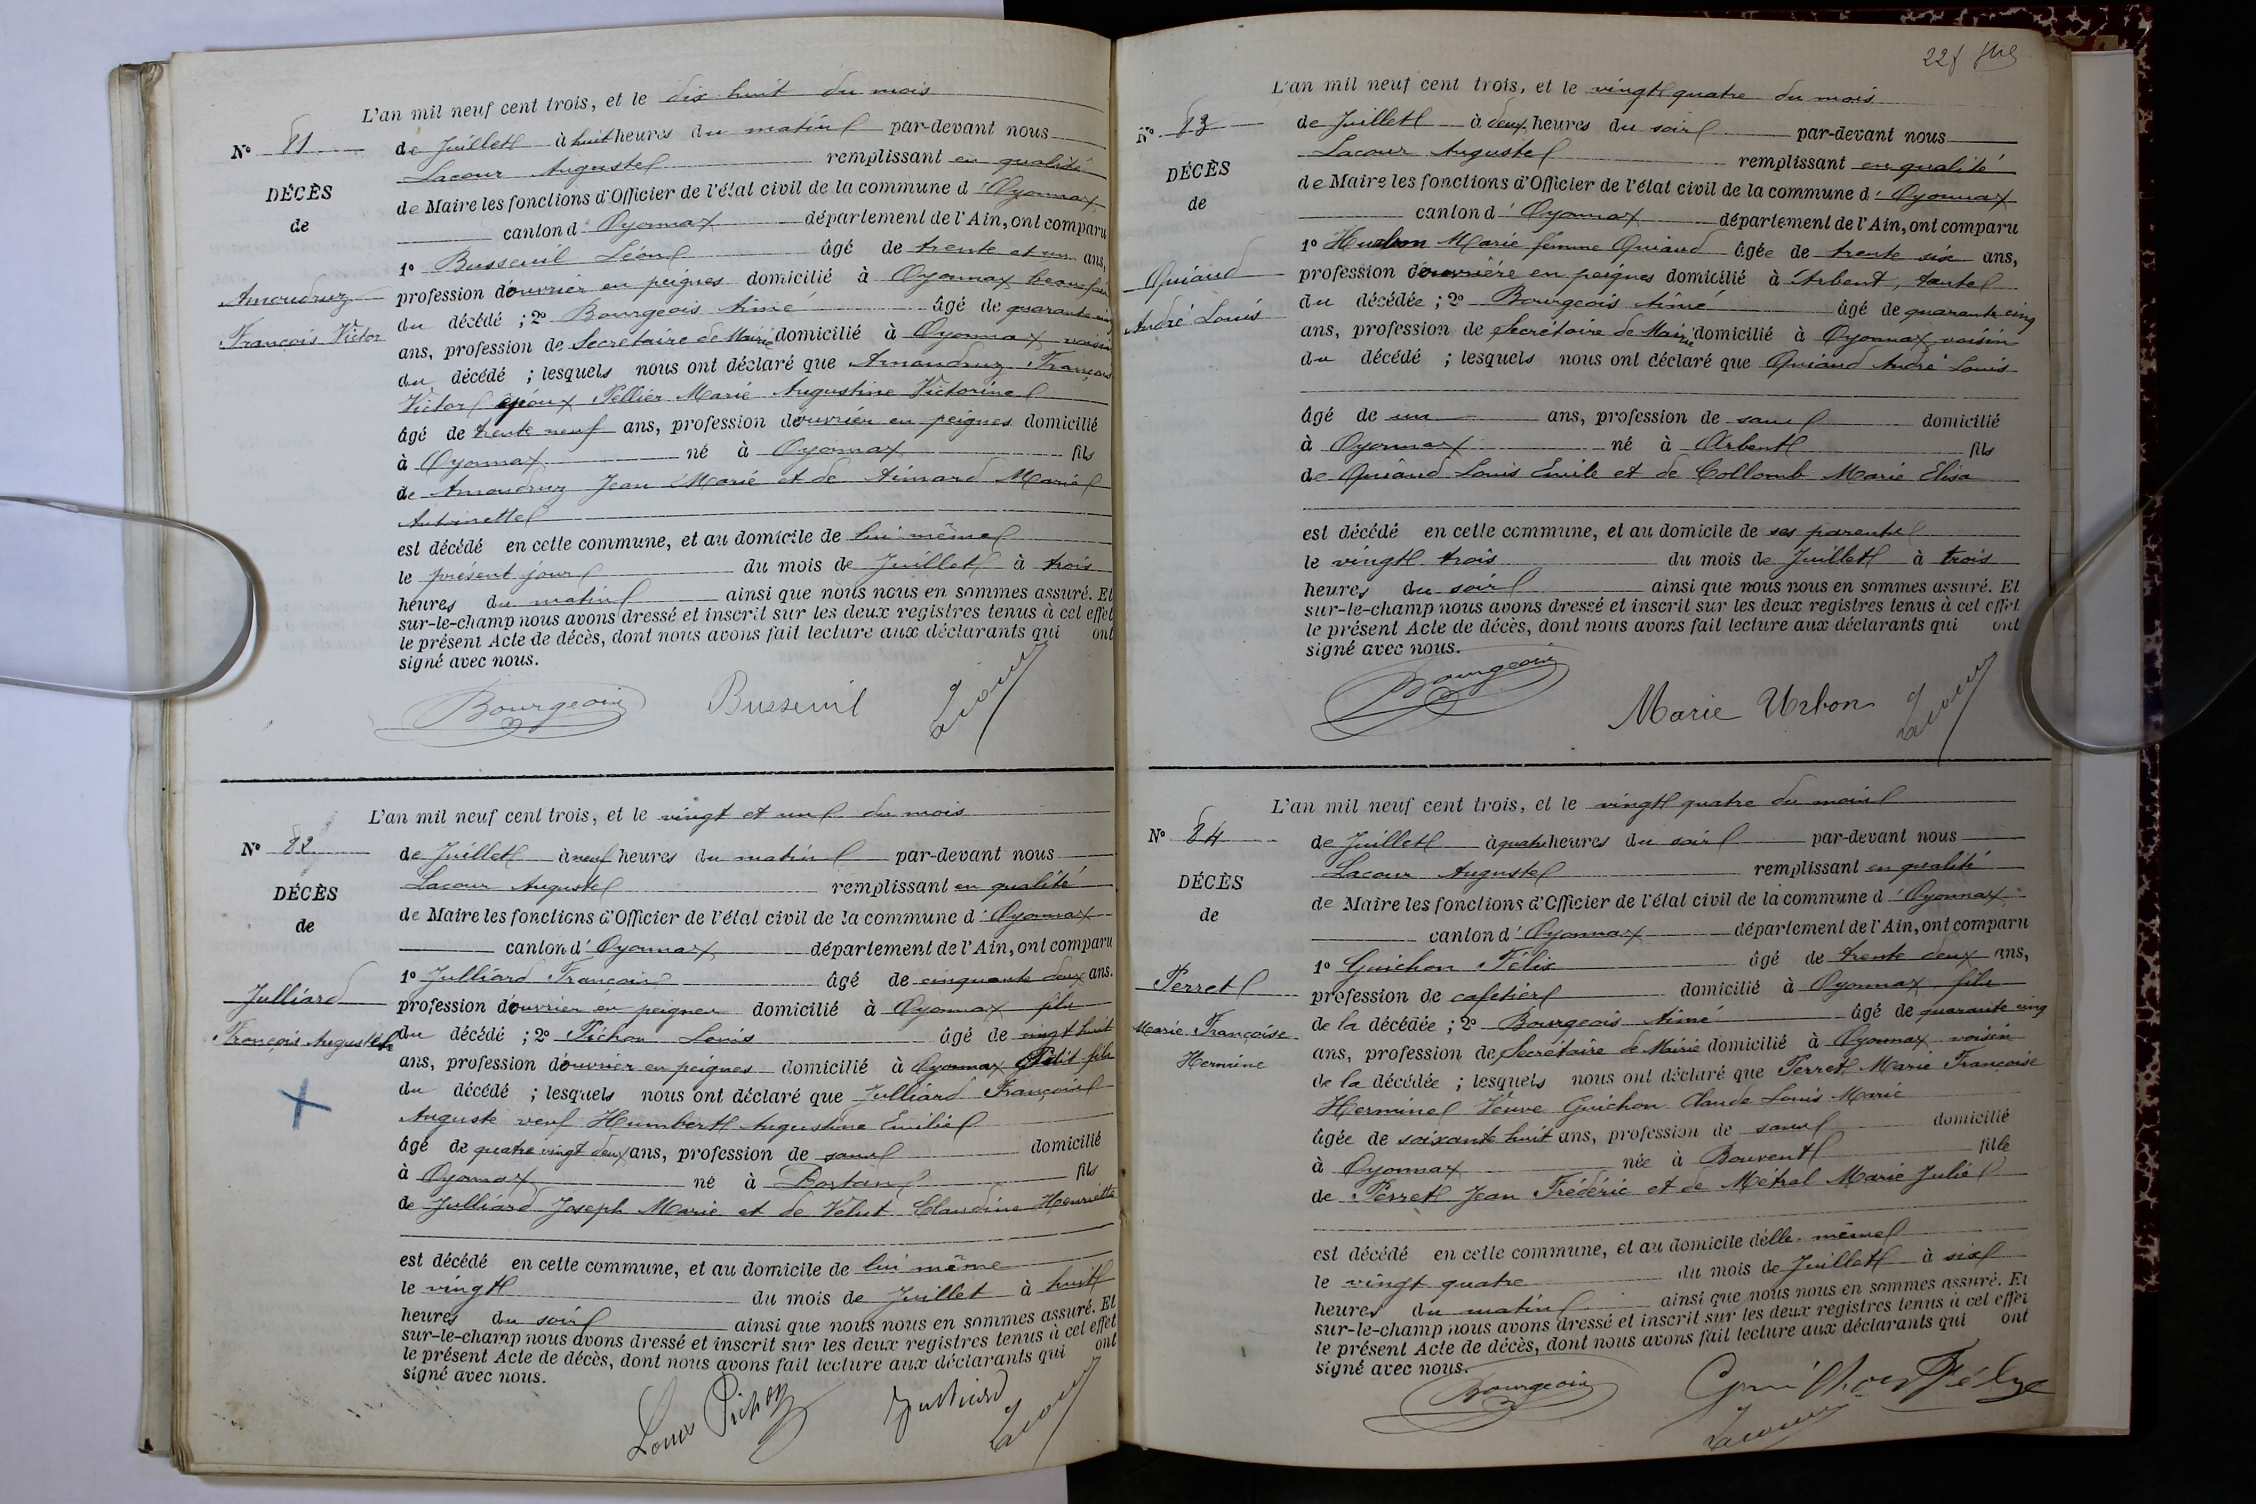 L'an mil neuf cent trois, et le dix huit du mois
N° 81
de Juillet à huit heures du matin par-devant nous
Lacour Auguste remplissant en qualité
DÉCÈS
de Maire les fonctions d'Officier de l'état civil de la commune d'Oyonnax
de
canton d'Oyonnax département de l'Ain, ont comparu
1° Busseuil Léon âgé de trente et un ans,
Amoudruz
François Victor
profession d'ouvrier en peignes domicilié à Oyonnax beau frère
du décédé ; 2° Bourgeois Aimé âgé de quarante cinq
ans, profession de Secrétaire de Mairie domicilié à Oyonnax voisin
du décédé ; lesquels nous ont déclaré que Amoudruz François
Victor époux Pellier Marie Augustine Victorine
âgé de trente neuf ans, profession d'ouvrier en peignes domicilié
à Oyonnax né à Oyonnax fils
de Amoudruz Jean Marie et de Aimard Marie
Antoinette
est décédé en cette commune, et au domicile de lui-même
le présent jour du mois de Juillet à trois
heures du matin ainsi que nous nous en sommes assuré. Et
sur-le-champ nous avons dressé et inscrit sur les deux registres tenus à cet effet
le présent Acte de décès, dont nous avons fait lecture aux déclarants qui ont
signé avec nous.
Bourgeois Busseuil Lacour
L'an mil neuf cent trois, et le vingt et un du mois
N° 82
de Juillet à neuf heures du matin par-devant nous
Lacour Auguste remplissant en qualité
DÉCÈS
de Maire les fonctions d'Officier de l'état civil de la commune d'Oyonnax
de
canton d'Oyonnax département de l'Ain, ont comparu
1° Julliard François âgé de cinquante deux ans.
Julliard
François Auguste
profession d'ouvrier en peignes domicilié à Oyonnax fils
du décédé ; 2° Pichon Louis âgé de vingt huit
ans, profession d'ouvrier en peignes domicilié à Oyonnax Petit-fils
du décédé ; lesquels nous ont déclaré que Julliard François
Auguste veuf Humbert Augustine Emilie
âgé de quatre vingt deux ans, profession de sans domicilié
à Oyonnax né à Dortan fils
de Julliard Joseph Marie et de Velut Claudine Henriette
est décédé en cette commune, et au domicile de lui même
le vingt du mois de Juillet à huit
heures du soir ainsi que nous nous en sommes assuré. Et
sur-le-champ nous avons dressé et inscrit sur les deux registres tenus à cet effet
le présent Acte de décès, dont nous avons fait lecture aux déclarants qui ont
signé avec nous.
Louis Pichon Julliard Lacour
L'an mil neuf cent trois, et le vingt quatre du mois
N° 83
de Juillet à deux heures du soir par-devant nous
Lacour Auguste remplissant en qualité
DÉCÈS
de Maire les fonctions d'Officier de l'état civil de la commune d'Oyonnax
de
canton d'Oyonnax département de l'Ain, ont comparu
1° Marie femme Quiaud âgée de trente six ans,
Quiaud
André Louis
profession d'ouvrière en peignes domicilié à Arbent, tante
du décédée ; 2° Bourgeois Aimé âgé de quarante cinq
ans, profession de Secrétaire de Mairie domicilié à Oyonnax voisin
du décédé ; lesquels nous ont déclaré que Quiaud André Louis
âgé de un ans, profession de sans domicilié
à Oyonnax né à Arbent fils
de Quiaud Louis Emile et de Collomb Marie Elisa
est décédé en cette commune, et au domicile de ses parents
le vingt trois du mois de Juillet à trois
heures du soir ainsi que nous nous en sommes assuré. Et
sur-le-champ nous avons dressé et inscrit sur les deux registres tenus à cet effet
le présent Acte de décès, dont nous avons fait lecture aux déclarants qui ont
signé avec nous.
Bourgeois Marie Urbon Lacour
L'an mil neuf cent trois, et le vingt quatre du mois
N° 84
de Juillet à quatre heures du soir par-devant nous
Lacour Auguste remplissant en qualité
DÉCÈS
de Maire les fonctions d'Officier de l'état civil de la commune d'Oyonnax
de
canton d'Oyonnax département de l'Ain, ont comparu
1° Guichon Félix âgé de trente deux ans,
Perret
Marie Françoise
Hermine
profession de cafetier domicilié à Oyonnax, fils
de la décédée ; 2° Bourgeois Aimé âgé de quarante cinq
ans, profession de Secrétaire de Mairie domicilié à Oyonnax voisin
de la décédée ; lesquels nous ont déclaré que Perret Marie Françoise
Hermine Veuve Guichon Claude Louis Marie
âgée de soixante huit ans, profession de sans domicilié
à Oyonnax née à Bouvent fille
de Perret Jean Frédéric et de Métral Marie Julie
est décédé en cette commune, et au domicile d'elle-même
le vingt quatre du mois de Juillet à six
heures du matin ainsi que nous nous en sommes assuré. Et
sur-le-champ nous avons dressé et inscrit sur les deux registres tenus à cet effet
le présent Acte de décès, dont nous avons fait lecture aux déclarants qui ont
signé avec nous.
Bourgeois Guichon Félix
Lacour